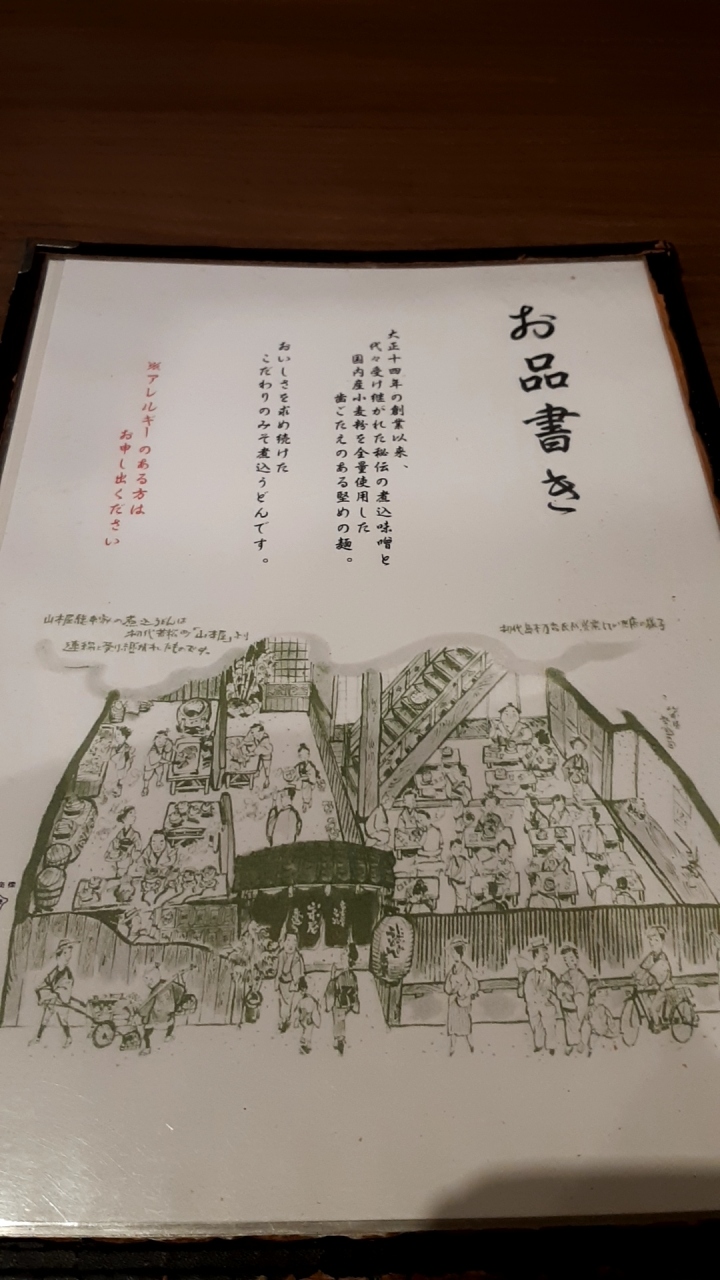 お品書き
大正十四年の創業以来、
代々受け継がれた秘伝の煮込味噌と
国内産小麦粉を全量使用した
歯ごたえのある堅めの麺。
おいしさを求め続けた
こだわりのみそ煮込うどんです。
※アレルギーのある方は
お申し出ください
初代
店の様子
山本屋総本家の煮込うどんは
初代若松の「山本屋」より